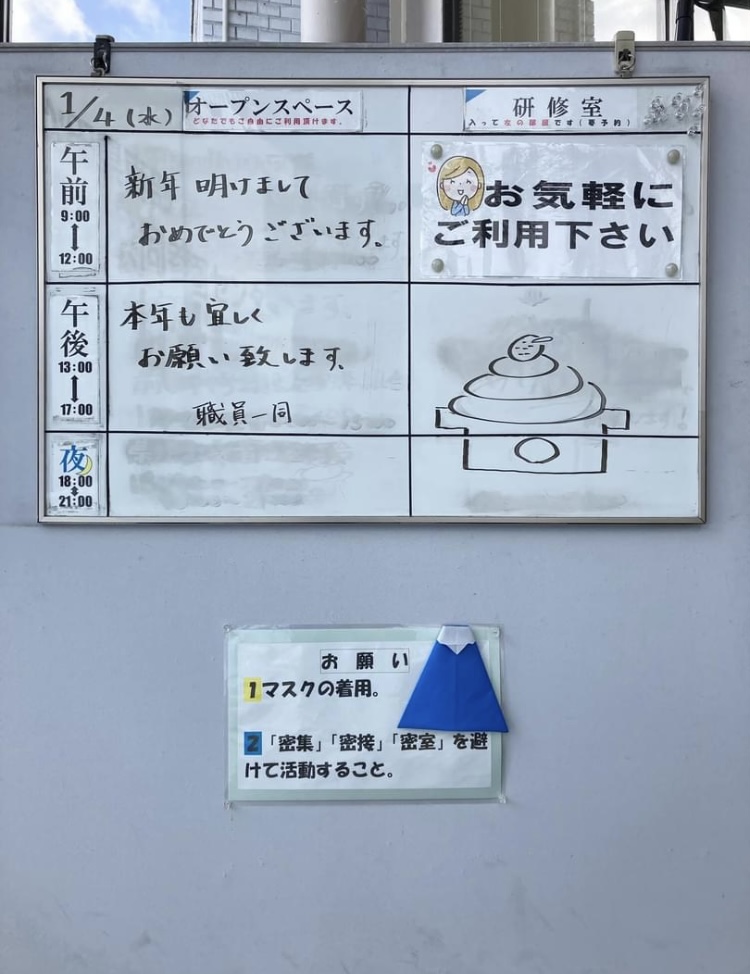 1/4(水)
オープンスペース
どなたでもご自由にご利用頂けます。
研修室
入って左の部屋です(要予約)
午前
9:00
12:00
新年明けまして
おめでとうございます。
お気軽に
ご利用下さい
午後
13:00
17:00
本年も宜しく
お願い致します。
職員一同
夜
18:00
21:00
お願い
1マスクの着用。
2「密集」「密接」「密室」を避
けて活動すること。